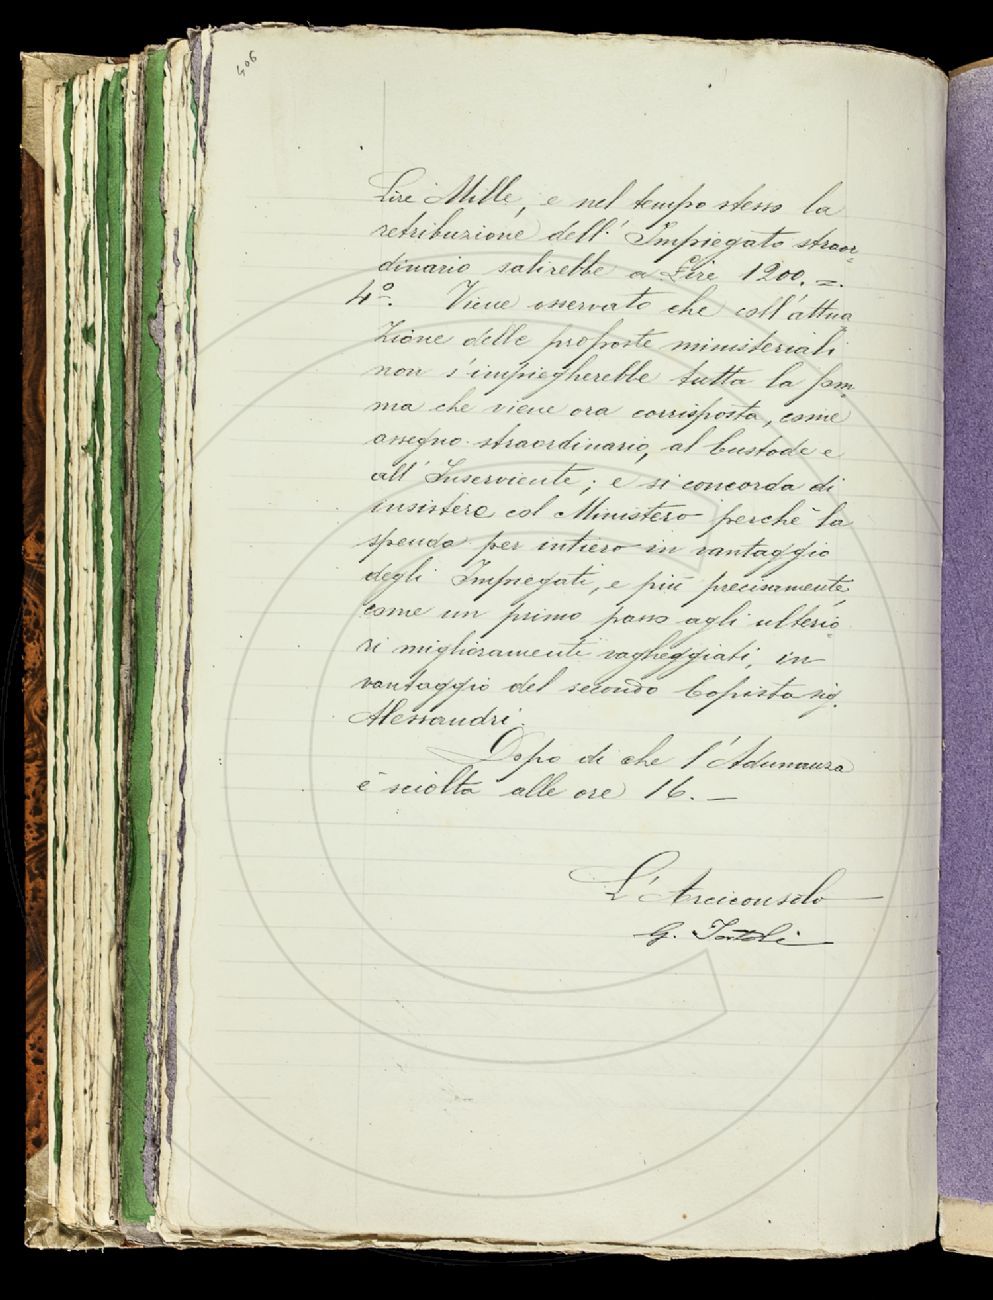 406
Lire Mille, e nel tempo stesso la
retribuzione dell' Impiegato straor=
dinario salirebbe a Lire 1200. =.
4º. Viene osservato che coll'attua
zione delle proposte ministeriali
non s'impiegherebbe tutta la som
ma che viene ora corrisposta, come
assegno straordinario, al Custode e
all' Inserviente; e si concorda di
insistere col Ministero perchè la
spenda per intiero in vantaggio
degli Impiegati, e più precisamente
come un primo passo agli ulterio
ri miglioramenti vagheggiati, in
vantaggio del secondo Copista sig.
Alessandri.
Dopo di che l'Adunanza
è sciolta alle ore 16. —
L'Arciconsolo
G. Tortoli